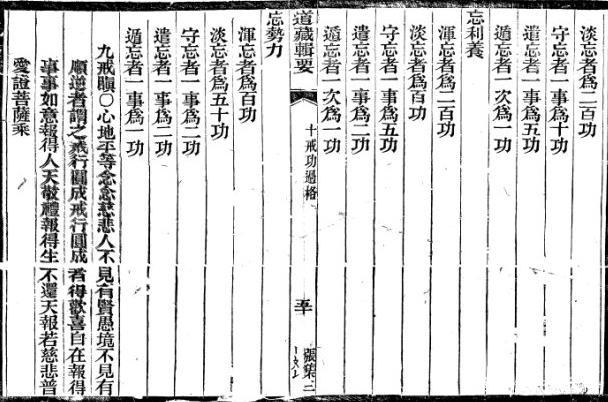 淡忘者爲二百功
守忘者一事爲十功
遣忘者一事爲五功
遁忘者一次爲一功
忘利養
渾忘者爲二百功
淡忘者爲百功
守忘者一事爲五功
遣忘者一事爲二功
遁忘者一次爲一功
道藏輯要
十戒功過格
張集二
忘勢力
渾忘者爲百功
淡忘者爲五十功
守忘者一事爲二功
遣忘者一事爲二功
遁忘者一事爲一功
九戒瞋○心地平等念念慈悲人不見有賢愚境不見有
順逆者謂之戒行圓成戒行圓成者得歡喜自在報得
事事如意報得人天敬禮報得生不還天報若慈悲普
愛證菩薩乘